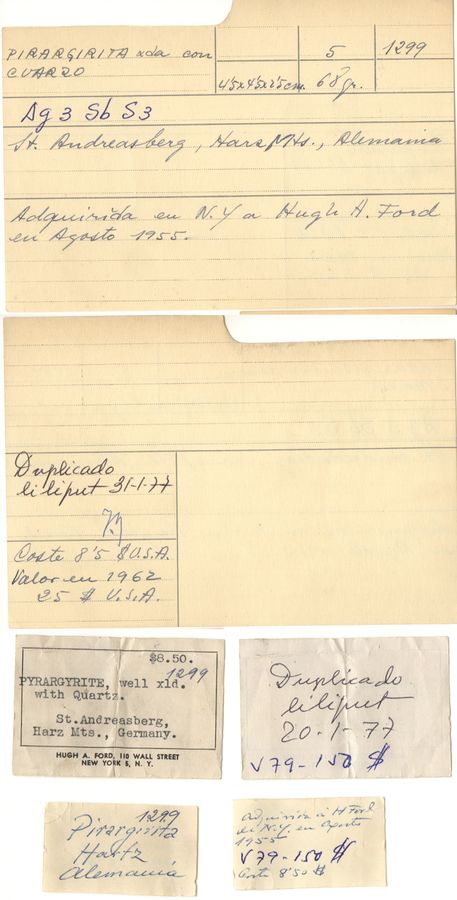 PIRARGIRITA xda con
CUARZO
5
1299
4'5x4'5x2'5 cm. 68 gr.
Ag 3 Sb S3
St. Andreasberg, Harz Mts., Alemania
Adquirida en N.Y a Hugh A. Ford
en Agosto 1955.
Duplicado
liliput 31-1-77
Coste 8'5 $ U.S.A.
Valor en 1962
25 $ U.S.A.
$8.50.
1299
PYRARGYRITE, well xld.
with Quartz.
St.Andreasberg,
Harz Mts., Germany.
HUGH A. FORD, 110 WALL STREET
NEW YORK 5, N. Y.
Duplicado
liliput
20-1-77
V79-150 $
1299
Pirargirita
Hartz
Alemania
Adquirida a H Ford
de N.Y. en Agosto
1955
V79-150 $
Coste 8'50 $